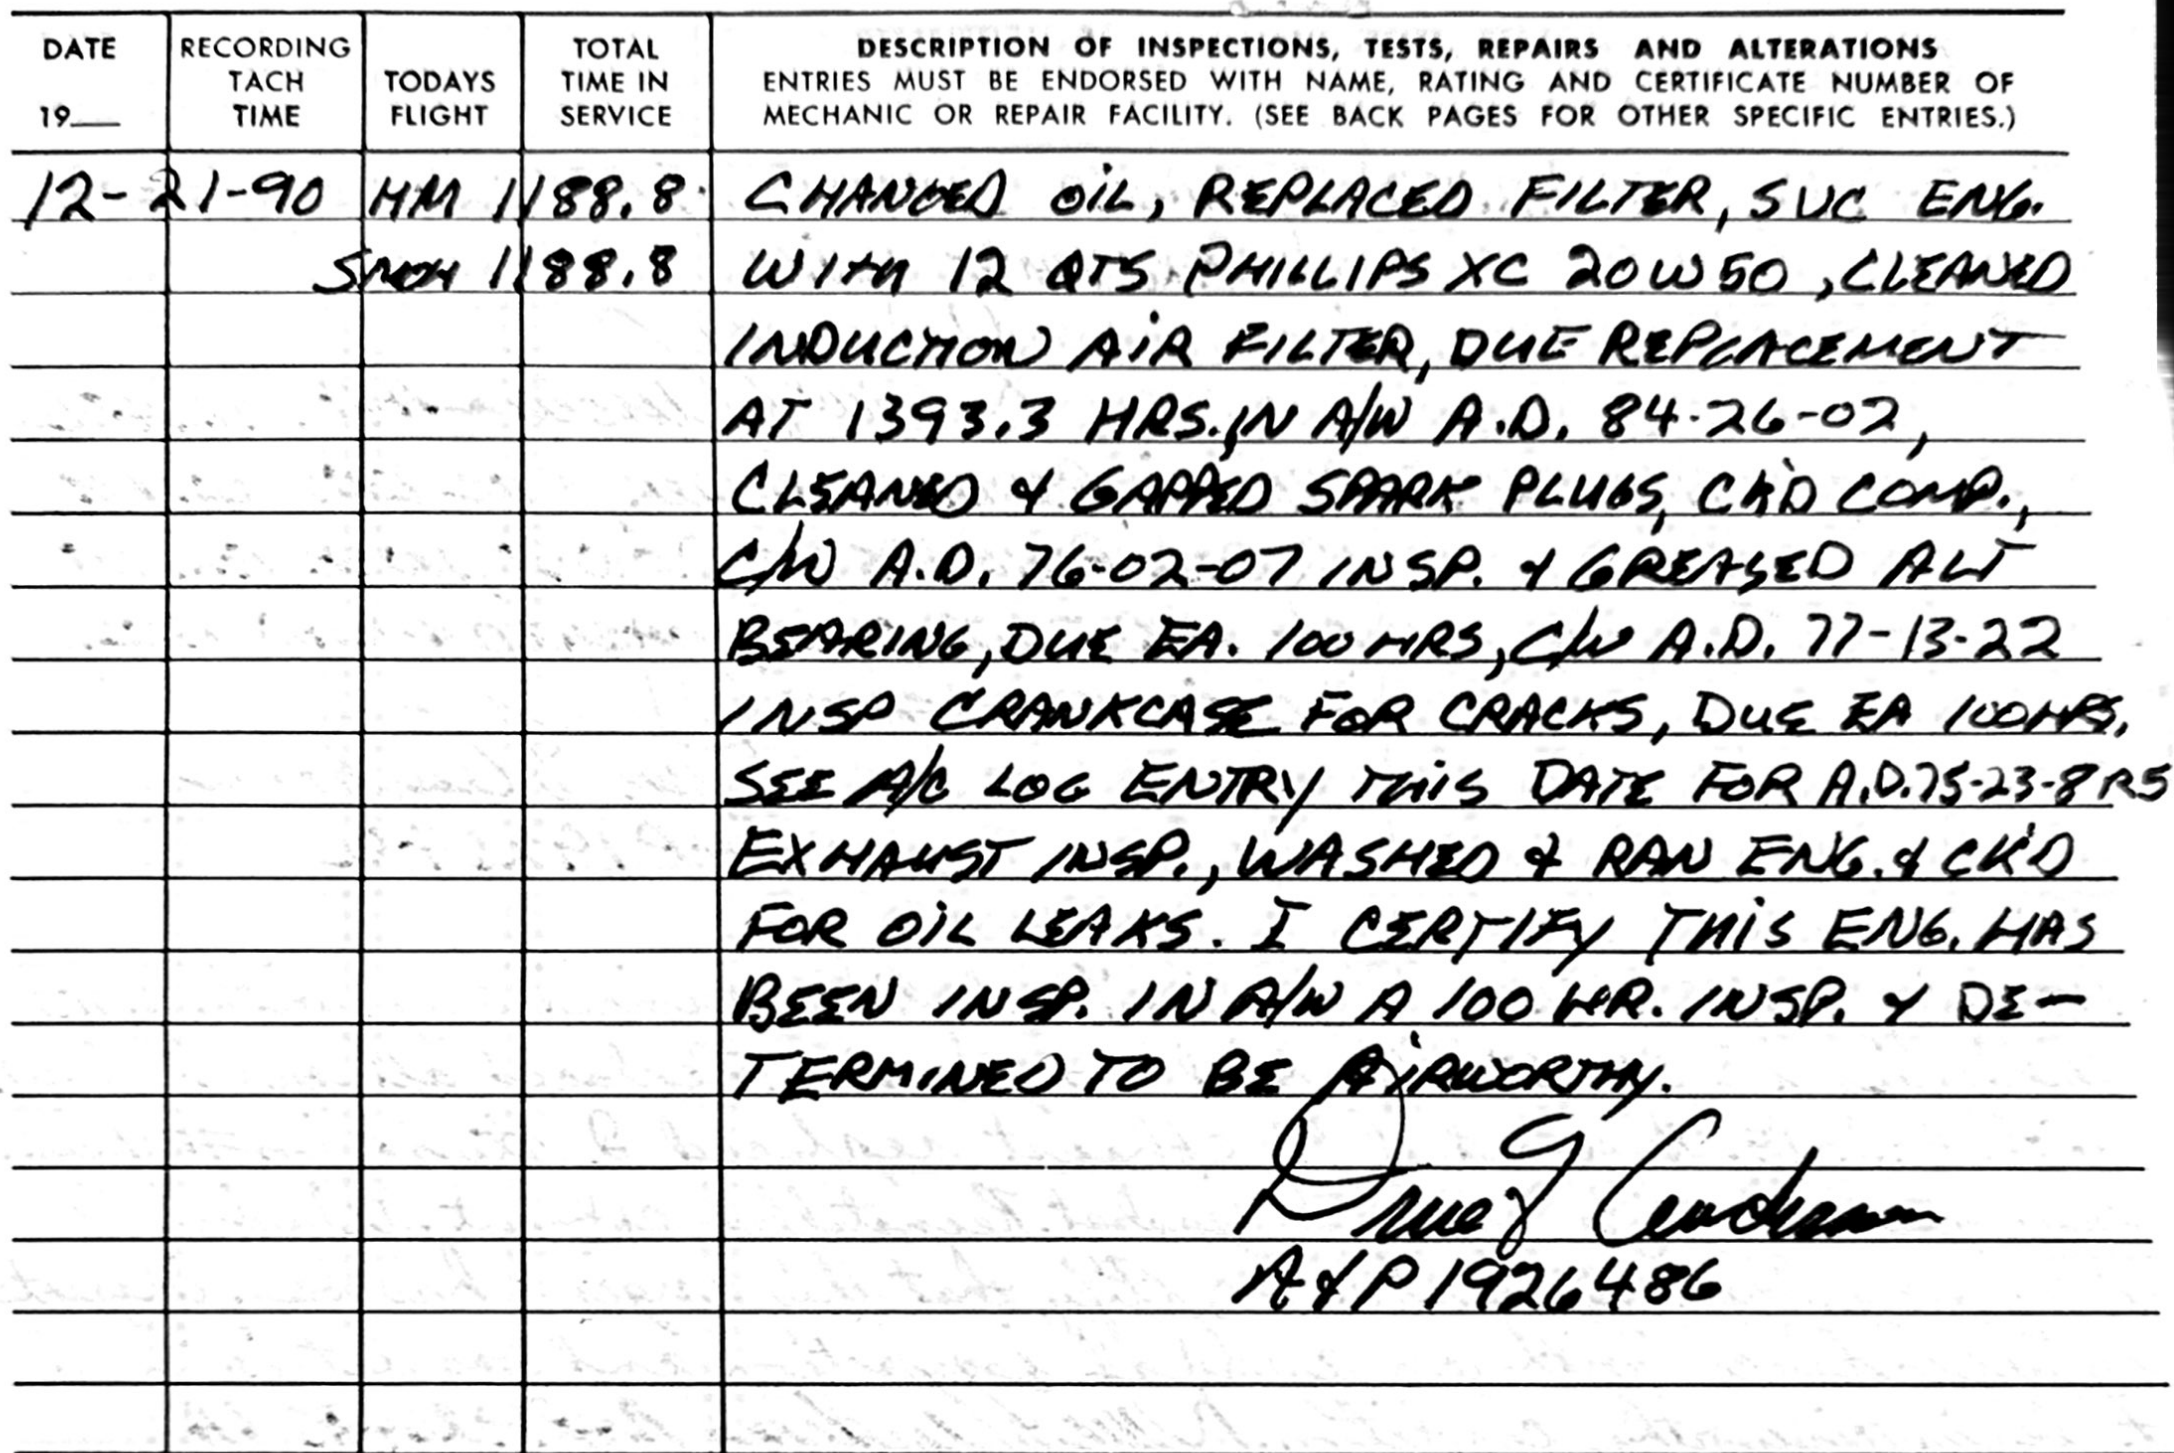 DATE 19__ RECORDING TACH TIME TODAYS FLIGHT TOTAL TIME IN SERVICE
DESCRIPTION OF INSPECTIONS, TESTS, REPAIRS AND ALTERATIONS
ENTRIES MUST BE ENDORSED WITH NAME, RATING AND CERTIFICATE NUMBER OF
MECHANIC OR REPAIR FACILITY. (SEE BACK PAGES FOR OTHER SPECIFIC ENTRIES.)
12-21-90 HM 1188.8 CHANGED OIL, REPLACED FILTER, SVC ENG.
SMOH 1188.8 WITH 12 QTS PHILLIPS XC 20W50, CLEANED
INDUCTION AIR FILTER, DUE REPLACEMENT
AT 1393.3 HRS. IN A/W A.D. 84-26-02,
CLEANED & GAPPED SPARK PLUGS, CK'D COMP.,
C/W A.D. 76-02-07 INSP. & GREASED ALT
BEARING, DUE EA. 100 HRS, C/W A.D. 77-13-22
INSP CRANKCASE FOR CRACKS, DUE EA 100 HRS.
SEE A/C LOG ENTRY THIS DATE FOR A.D. 75-23-8 R5
EXHAUST INSP., WASHED & RAN ENG. & CK'D
FOR OIL LEAKS. I CERTIFY THIS ENG. HAS
BEEN INSP. IN A/W A 100 HR. INSP. & DE-
TERMINED TO BE AIRWORTHY.
A&P 1926486